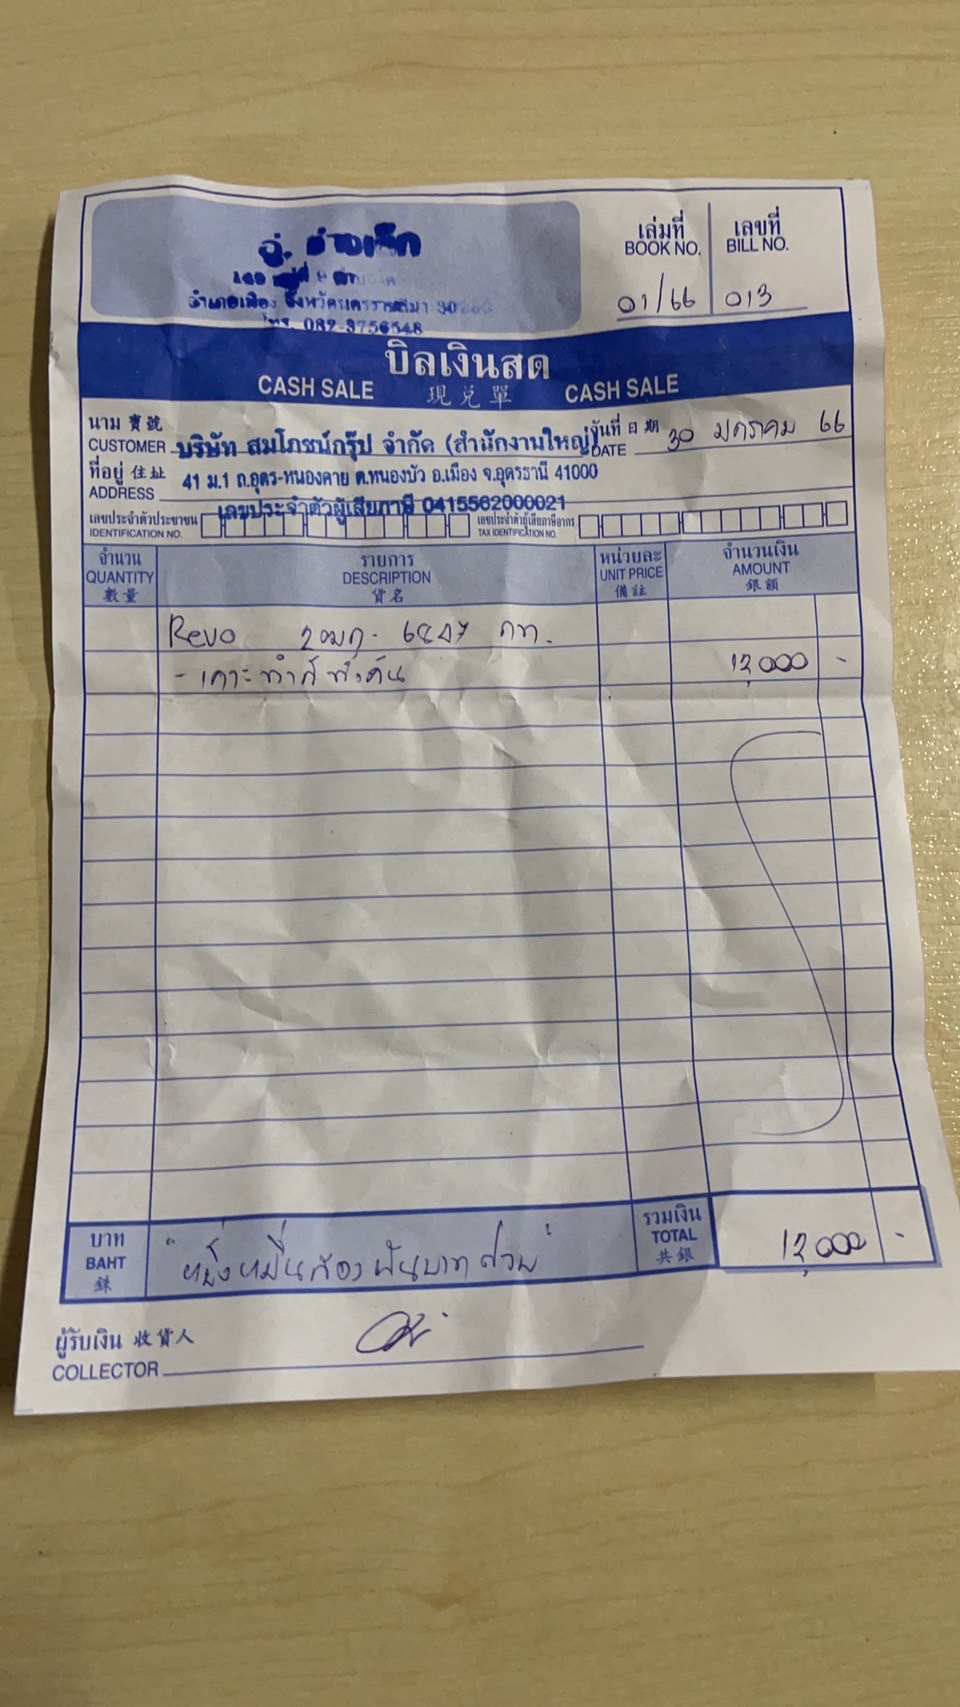 อู่. ช่างเล็ก
อำเภอเมือง จังหวัดนครราชสีมา 30
โทร. 082-3756548
เล่มที่
BOOK NO.
01/66
เลขที่
BILL NO.
013
บิลเงินสด
CASH SALE 現兑單 CASH SALE
นาม 寳號
CUSTOMER บริษัท สมโภชน์กรุ๊ป จำกัด (สำนักงานใหญ่)
วันที่ 日期
DATE 30 มกราคม 66
ที่อยู่ 住址
ADDRESS 41 ม.1 ถ.อุดร-หนองคาย ต.หนองบัว อ.เมือง จ.อุดรธานี 41000
เลขประจำตัวผู้เสียภาษี 0415562000021
เลขประจำตัวประชาชน
IDENTIFICATION NO.
เลขประจำตัวผู้เสียภาษีอากร
TAX IDENTIFICATION NO.
จำนวน
QUANTITY
數量
รายการ
DESCRIPTION
貨名
หน่วยละ
UNIT PRICE
備註
จำนวนเงิน
AMOUNT
銀額
Revo 6447 กท.
- เคาะทำสีทั้งคัน 12,000 -
บาท
BAHT
銖
"หนึ่งหมื่นสองพันบาทถ้วน"
รวมเงิน
TOTAL
共銀
12,000 -
ผู้รับเงิน 收貨人
COLLECTOR